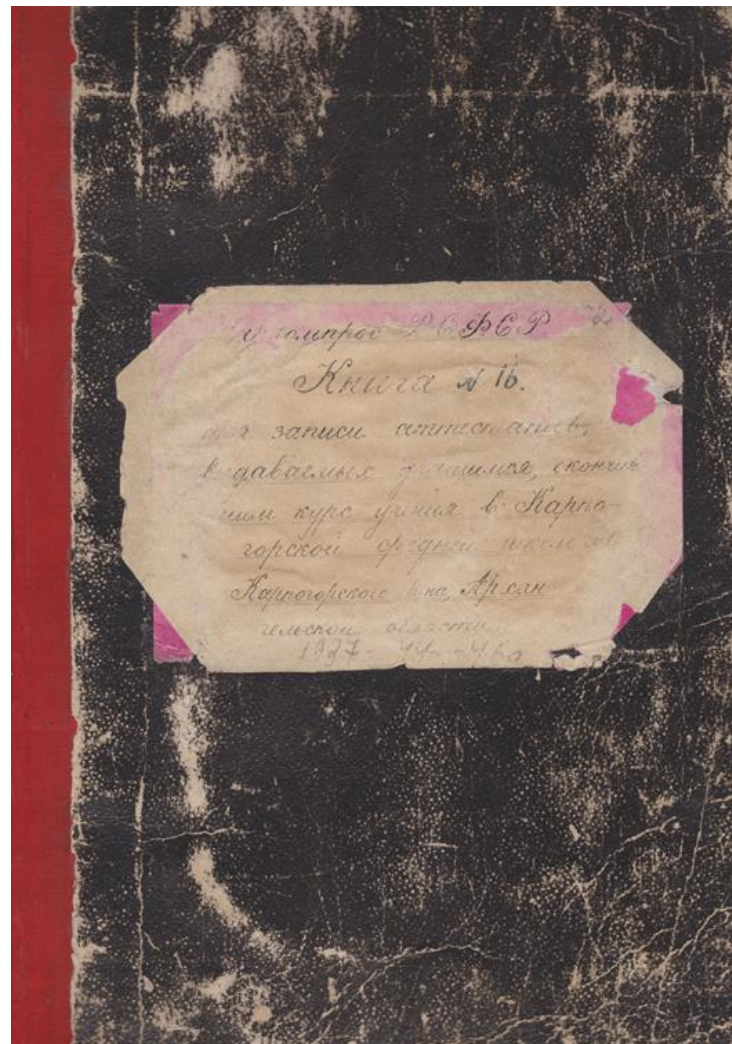 Наркомпрос РСФСР
Книга № 16.
для записи аттестатов,
выдаваемых учащимся, окончив
шим курс учения в Карпо-
горской средней школе
Карпогорского р-на, Архан
гельской области
1937-